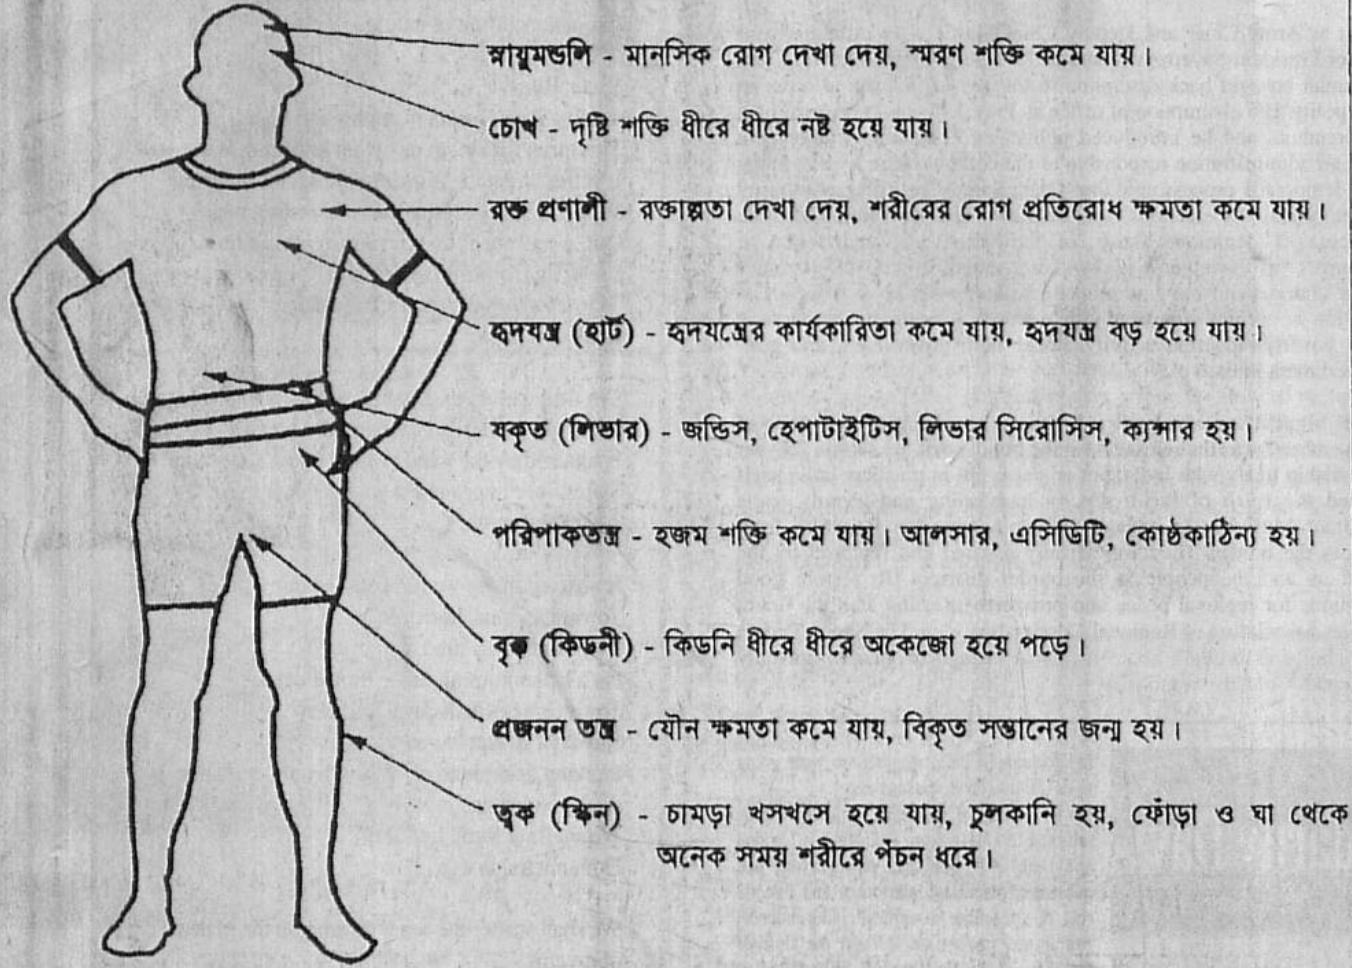 স্নায়ুমন্ডলি - মানসিক রোগ দেখা দেয়, স্মরণ শক্তি কমে যায়।
চোখ - দৃষ্টি শক্তি ধীরে ধীরে নষ্ট হয়ে যায়।
রক্ত প্রণালী - রক্তাল্পতা দেখা দেয়, শরীরের রোগ প্রতিরোধ ক্ষমতা কমে যায়।
হৃদযন্ত্র (হার্ট) - হৃদযন্ত্রের কার্যকারিতা কমে যায়, হৃদযন্ত্র বড় হয়ে যায়।
যকৃত (লিভার) - জন্ডিস, হেপাটাইটিস, লিভার সিরোসিস, ক্যান্সার হয়।
পরিপাকতন্ত্র - হজম শক্তি কমে যায়। আলসার, এসিডিটি, কোষ্ঠকাঠিন্য হয়।
বৃক্ক (কিডনী) - কিডনি ধীরে ধীরে অকেজো হয়ে পড়ে।
প্রজনন তন্ত্র - যৌন ক্ষমতা কমে যায়, বিকৃত সন্তানের জন্ম হয়।
ত্বক (স্কিন) - চামড়া খসখসে হয়ে যায়, চুলকানি হয়, ফোঁড়া ও ঘা থেকে
অনেক সময় শরীরে পঁচন ধরে।